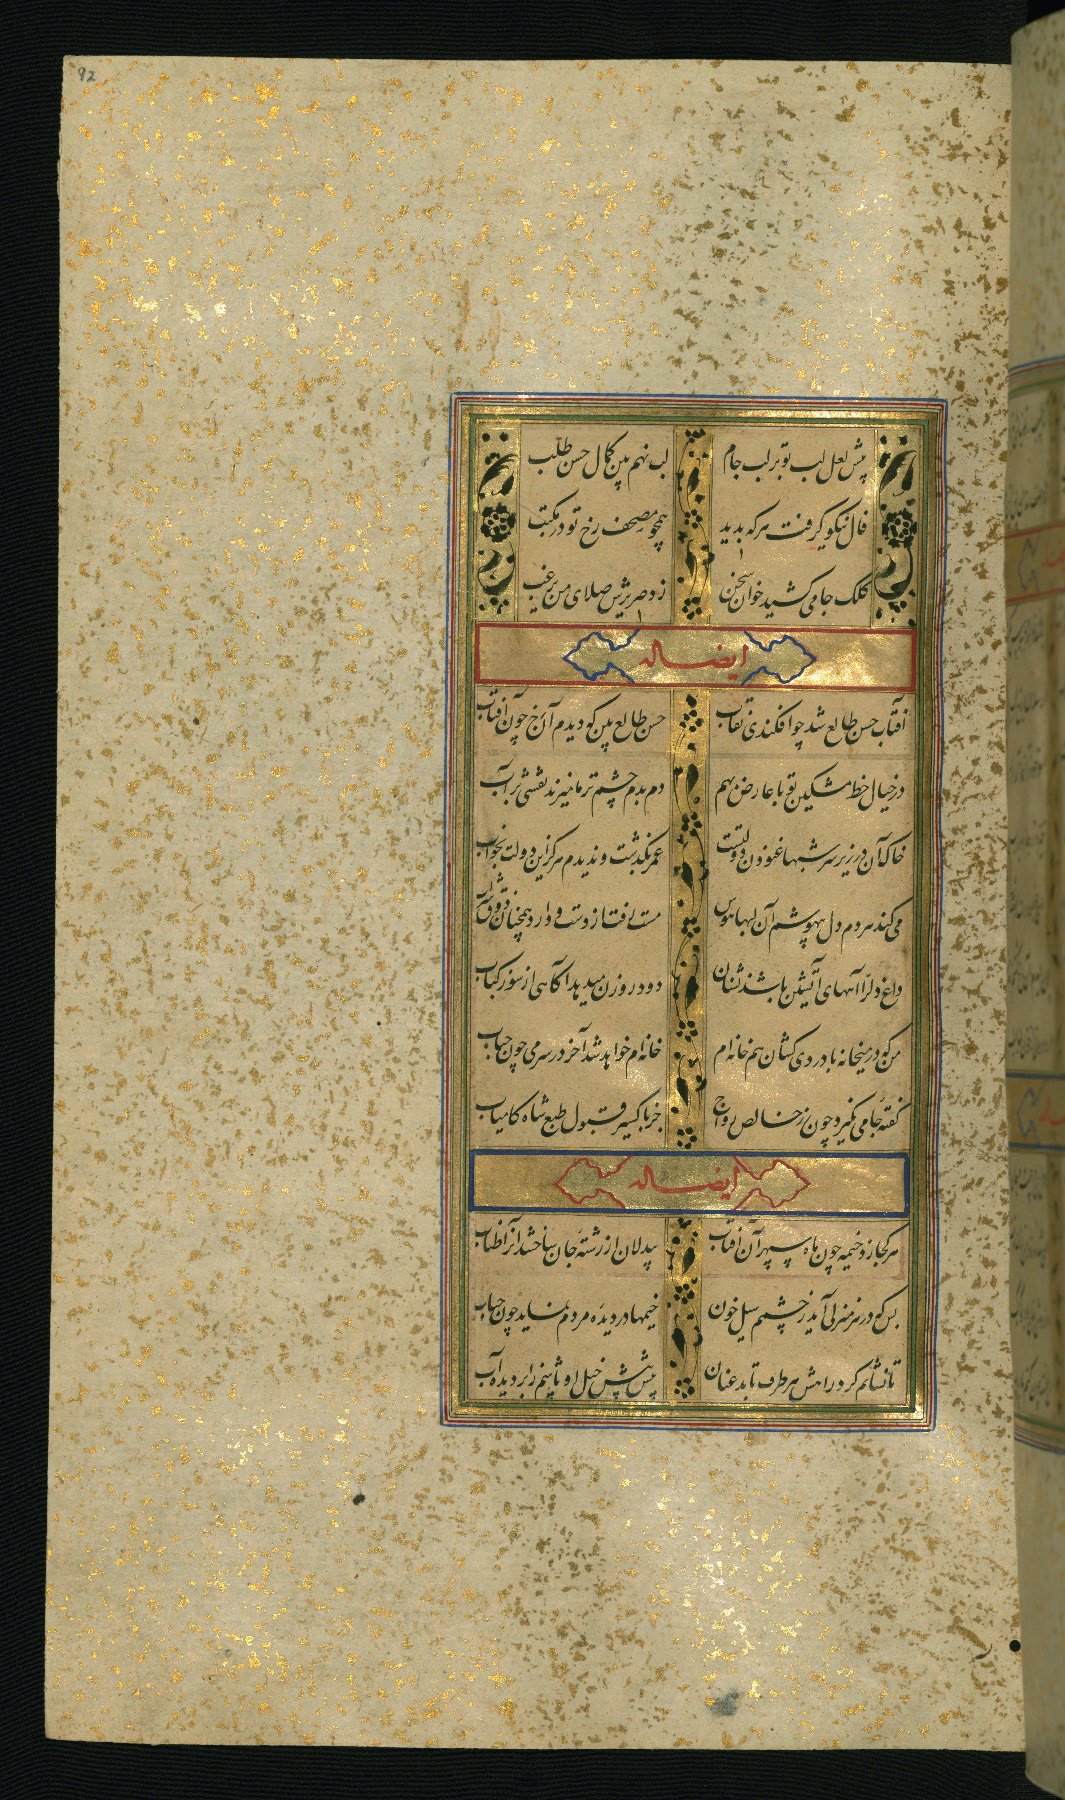 92
پیش لعل لب تو بر لب جام لب نهم بین کمال حسن طلب
فال نیکو گرفت هر که بدید همچو مصحف رخ تو در مکتب
کلک جامی کشید خوان سخن زد صریرش صلای من یرغب
ایضا له
آفتاب حسن طالع شد چو افکندی نقاب حسن طالع بین که دیدم آن رخ چون آفتاب
در خیال خط مشکین تو با عارض بهم دم بدم چشم ترم انیزند نقشی بر آب
خاک آن در زیر سر شبها غنودن دولتست عمر بگذشت و ندیدم هرگز این دولت بخواب
می کند هر دم دل بیهوشم آن لبها هوس مست افتاد از دست و دارد همچنان ذوق شراب
داغ دل را آههای آتشین باشد نشان دود روزن میدهد آگاهی از سوز کباب
من که در میخانه با دردی کشان هم خانه ام خانه ام خواهد شد آخر در سر می چون حباب
گفته جامی نگیرد چون زر خالص رواج جز باکسیر قبول طبع شاه کامیاب
ایضا له
هر کجا زد خیمه چون ماه سپهر آن آفتاب بیدلان از رشته جان ساختند آنرا طناب
بس که در هر منزلی آید ز چشمم سیل خون خیمها در دیده مردم نماید چون حباب
تا نشانم گرد راهش هر طرف تابد عنان پیش پیش خیل او تا زنم از دیده آب